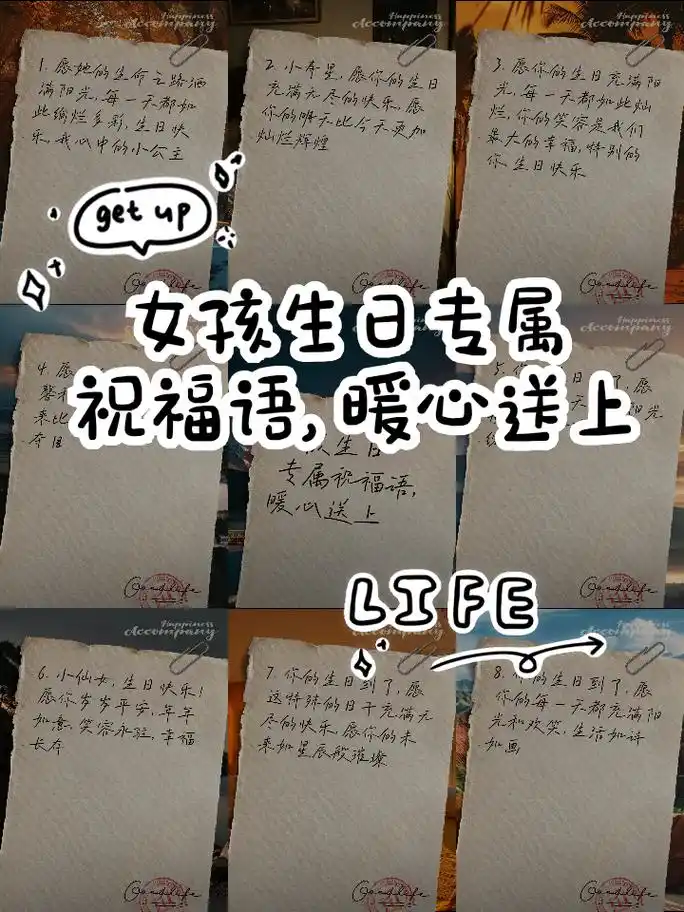 Happiness
Accompany
Happiness
Accompany
Happiness
Accompany
1. 愿她的生命之路洒
满阳光,每一天都如
此绚烂多彩,生日快
乐,我心中的小公主
2. 小寿星,愿你的生日
充满无尽的快乐,愿
你的明天比今天更加
灿烂辉煌
3. 愿你的生日充满阳
光,每一天都如此灿
烂,你的笑容是我们
最大的幸福,特别的
你生日快乐
get up
Goodlife
Goodlife
Goodlife
女孩生日专属
祝福语,暖心送上
Happiness
Accompany
4. 愿
来比
夺目
生日
专属祝福语,
暖心送上
5.
日
了,愿
天
阳光
Goodlife
Goodlife
LIFE
Happiness
Accompany
Happiness
Accompany
6. 小仙女,生日快乐!
愿你岁岁平安,年年
如意,笑容永驻,幸福
长存
7. 你的生日到了,愿
这特殊的日子充满无
尽的快乐,愿你的未
来如星辰般璀璨
8. 你的生日到了,愿
你的每一天都充满阳
光和欢笑,生活如诗
如画
Goodlife
Goodlife
Goodlife